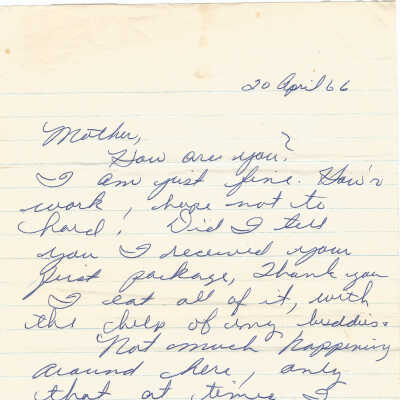 20 April 66
Mother,
How are you?
I am just fine. How's
work, hope not to
hard! Did I tell
you I received your
first package, Thank you
I eat all of it, with
the help of my buddies.
Not much happening
around here, only
that at times I